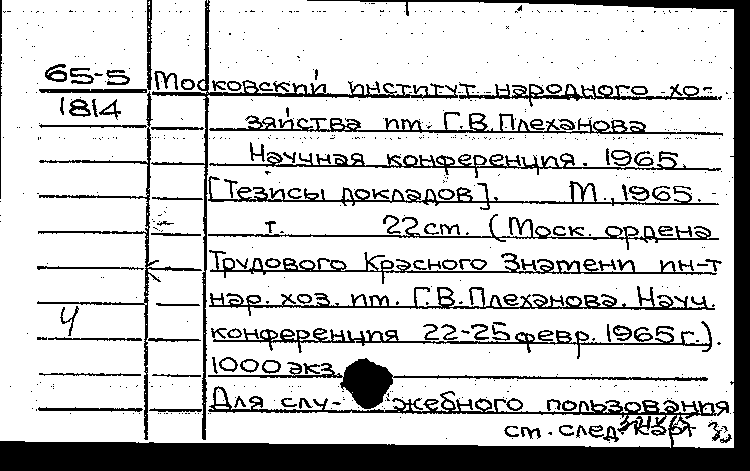 65-5 Московский институт народного хо-
1814 зяйства им. Г.В.Плеханова
Научная конференция. 1965.
[Тезисы докладов]. М., 1965.
т. 22 см. (Моск. ордена
Трудового Красного Знамени ин-т
нар. хоз. им. Г.В.Плеханова. Науч.
Ч конференция 22-25 февр. 1965 г.).
1000 экз.
Для слу- жебного пользования
см. след карт